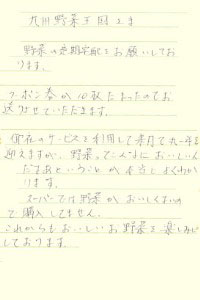 九州野菜王国さま
野菜の定期宅配をお願いしてお
ります。
クーポン券が10枚たまったのでお
送りさせていただきます。
御社のサービスを利用して来月で九一年を
迎えますが、野菜ってこんなにおいしいん
だなあということが本当によくわか
ります。
スーパーでは野菜がおいしくないの
で購入してません。
これからもおいしいお野菜を楽しみに
しております。